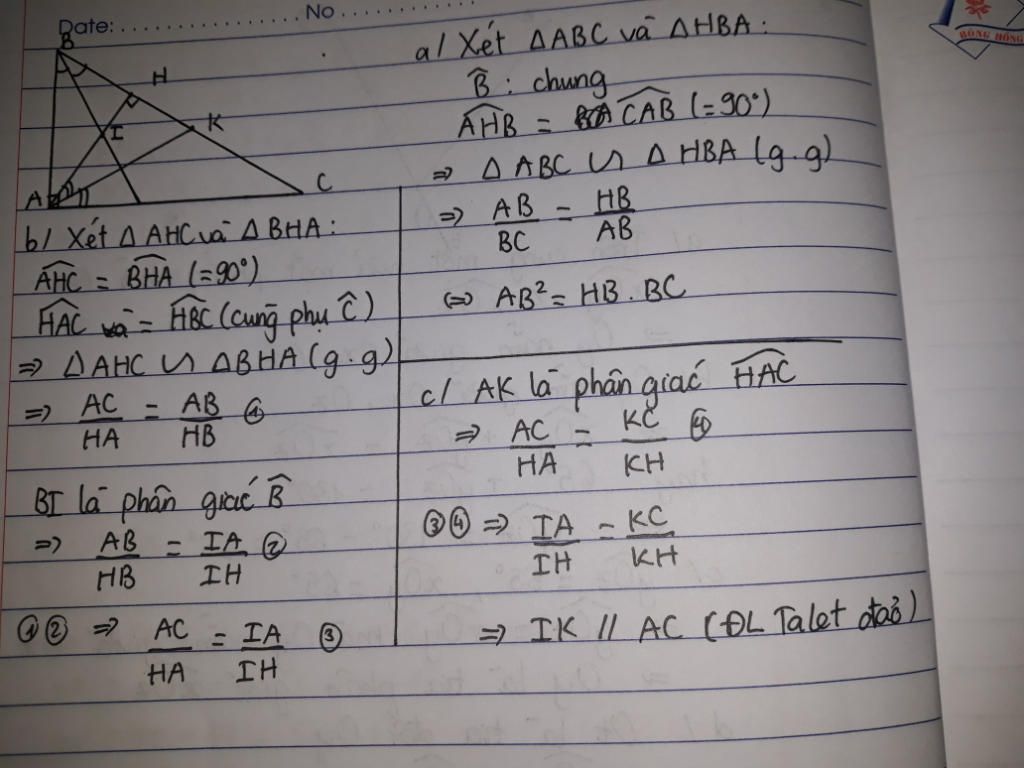 Date: ............... No ...............
BÔNG HỒNG
B
H
K
I
A
C
a/ Xét ΔABC và ΔHBA :
B̂ : chung
AHB^ = CAB^ (= 90°)
⇒ Δ ABC ∽ Δ HBA (g.g)
⇒ AB/BC = HB/AB
⇔ AB² = HB . BC
b/ Xét Δ AHC và Δ BHA :
AHC^ = BHA^ (= 90°)
HAC^ = HBC^ (cùng phụ Ĉ)
⇒ Δ AHC ∽ Δ BHA (g.g)
⇒ AC/HA = AB/HB ①
BI là phân giác B̂
⇒ AB/HB = IA/IH ②
①② ⇒ AC/HA = IA/IH ③
c/ AK là phân giác HAC^
⇒ AC/HA = KC/KH ④
③④ ⇒ IA/IH = KC/KH
⇒ IK // AC (ĐL Talet đảo)